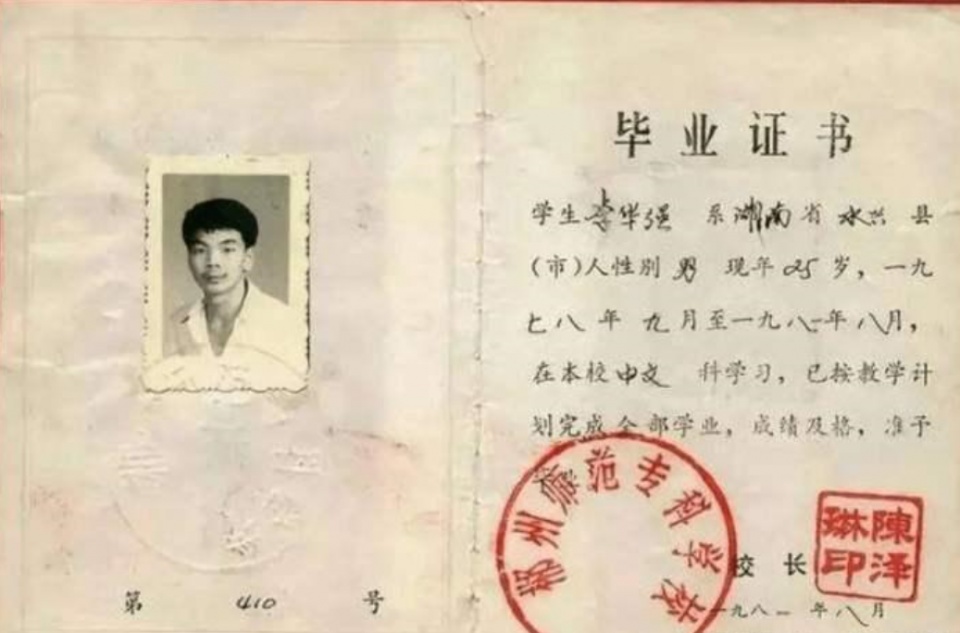 毕业证书
学生李华强 系湖南省永兴县
（市）人性别 男 现年 25 岁，一九
七八年 九月至一九八一年八月，
在本校中文 科学习，已按教学计
划完成全部学业，成绩及格，准予
州师范专科学校
校长
陳泽
琳印
一九八一年八月
第 410 号